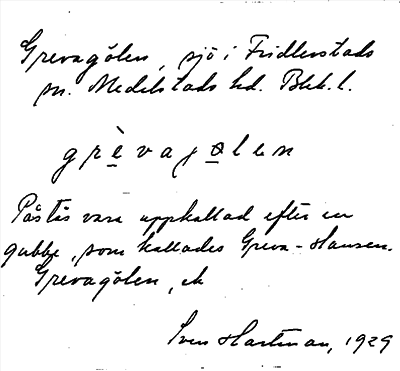 Grevagölen, sjö i Fridlevstads
sn. Medelstads hd. Blek. l.
grèvagølen
Påstås vara uppkallad efter en
gubbe, som kallades Greva-Hansen.
Grevagölen, ek
Sven Hartman, 1929